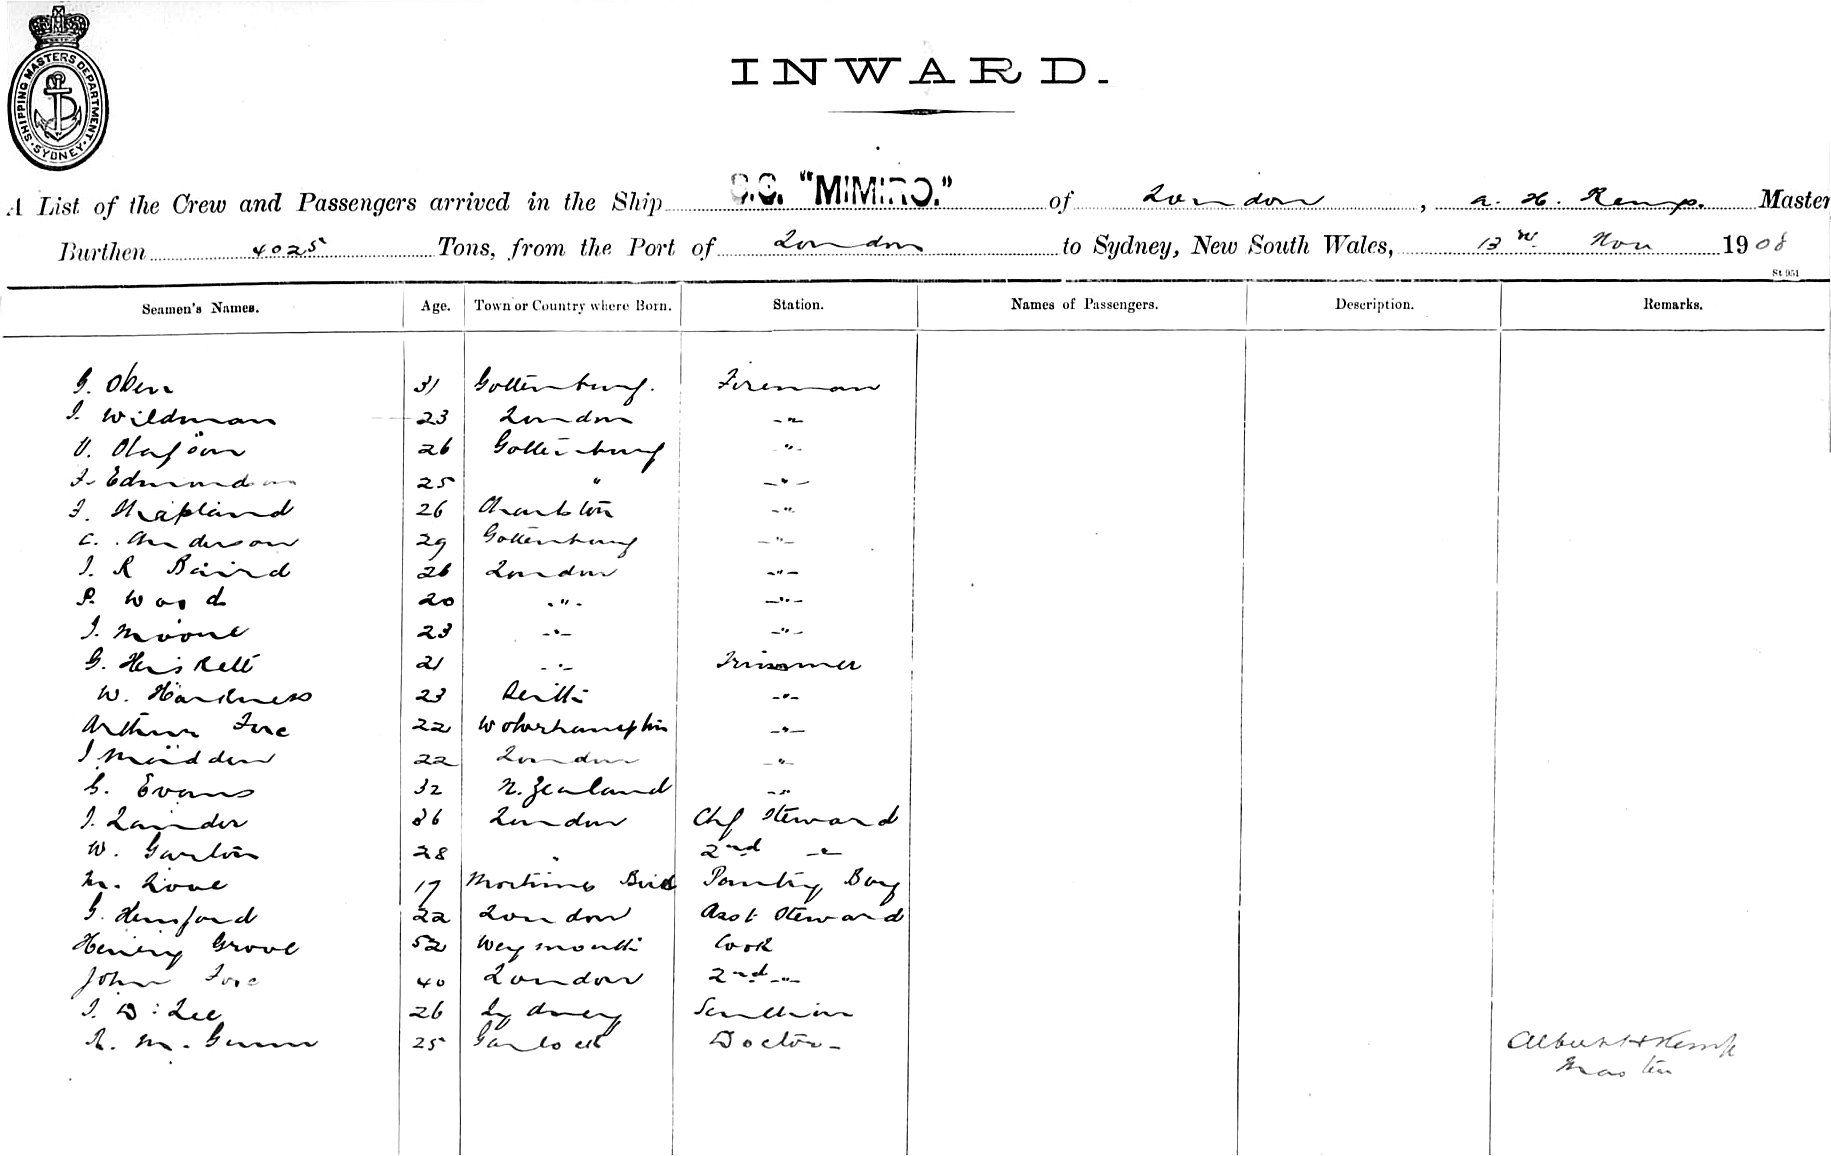 SHIPPING MASTERS DEPARTMENT
SYDNEY
INWARD.
A List of the Crew and Passengers arrived in the Ship S.S. "MIMIRO." of London, A. H. Kemp. Master
Burthen 4025 Tons, from the Port of London to Sydney, New South Wales, 13th Nov 1908
St 951
Seamen's Names. Age. Town or Country where Born. Station. Names of Passengers. Description. Remarks.
G. 31 Gottenburg. Fireman
J. Wildman 23 London -"-
O. Olafson 26 Gottenburg -"-
25 " -"-
26 -"-
C. Anderson 29 Gottenburg -"-
J. R Baird 26 London -"-
P. Wood 20 -"- -"-
J. Moore 23 -"- -"-
G. 21 -"- Trimmer
W. Harkness 23 Leith -"-
Arthur Fox 22 Wolverhampton -"-
J Madden 22 London -"-
G. Evans 32 N. Zealand -"-
J. 36 London Chf Steward
W. Garton 28 " 2nd -"-
M. Love 17 Pantry Boy
G. Hensford 22 London Asst Steward
Henery Grove 52 Weymouth Cook
John Fox 40 London 2nd -"-
J. D. Lee 26 Sydney Scullion
R. M. Gunn 25 Doctor
Albert H Kemp
Master